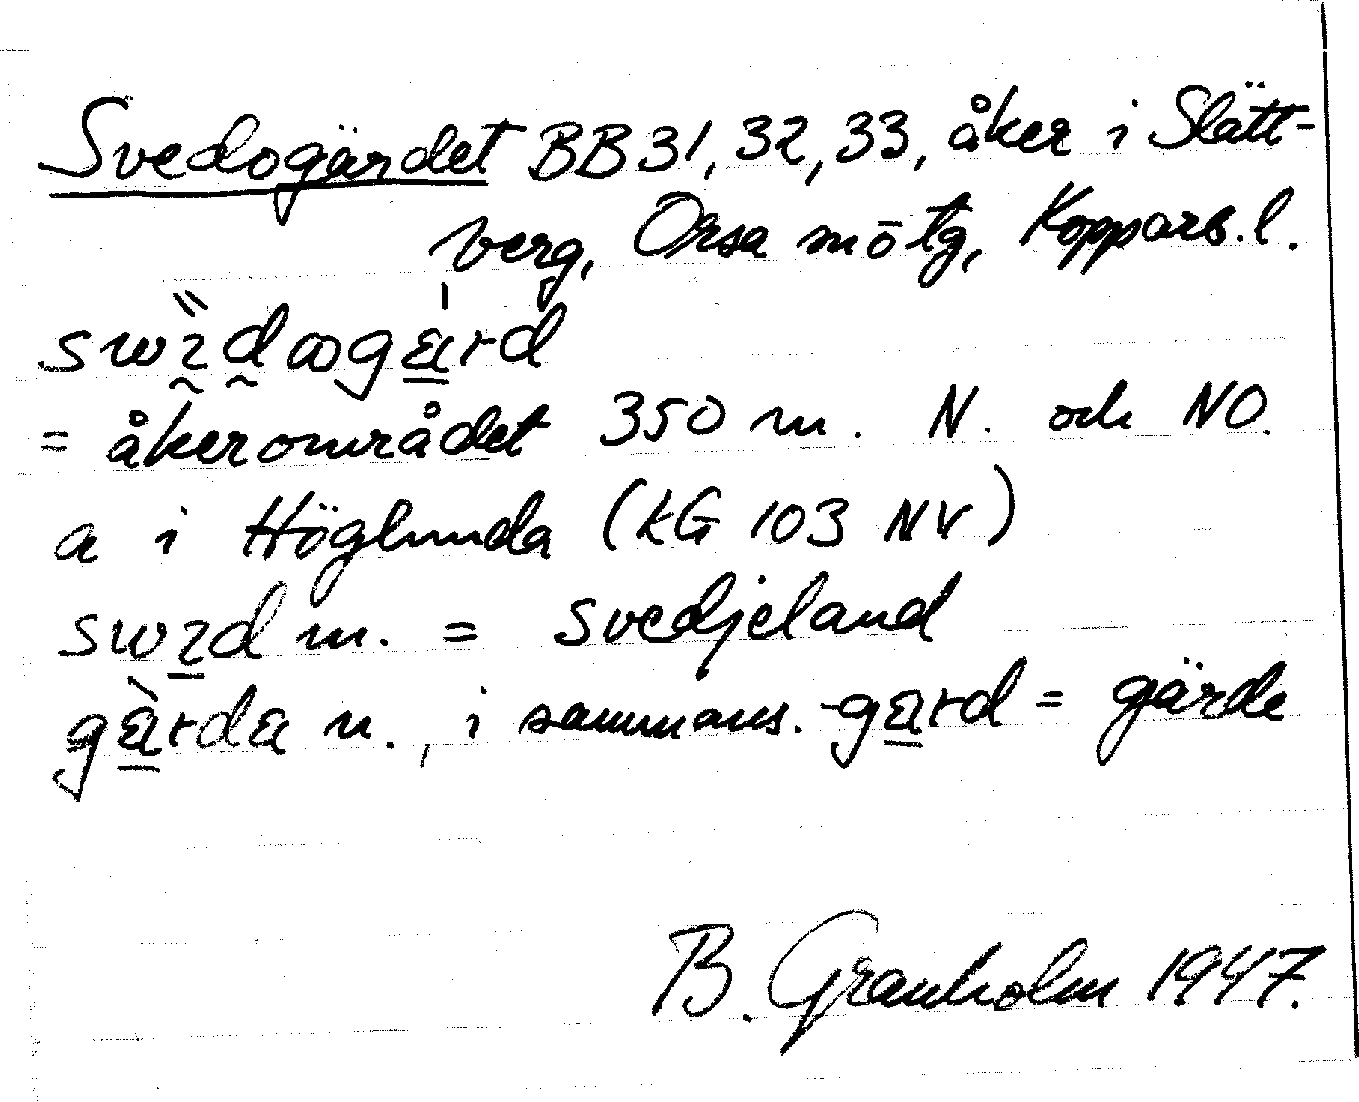 Svedogärdet BB 31, 32, 33, åker i Slätt-
berg, Orsa sn ō tg, Kopparb. l.
= åkerområdet 350 m. N. och NO.
a i Höglunda (KG 103 NV)
m. = svedjeland
n., i sammans. = gärde
B. Granholm 1947.